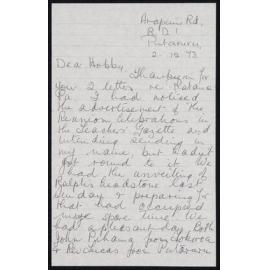 Arapuni Rd,
R.D.1
Putaruru,
2-12-73
Dear Hobby,
Thankyou for
your 2 letters re Ratana
Pa. I had noticed
the advertisement of the
Reunion Celebrations in
the Teachers' Gazette and
intending sending in
my name but hadn't
got round to it. We
had the unveiling of
Ralph's headstone last
Sunday & preparing for
that had occupied
more spare time. We
had a pleasant day. Both
John from Tokoroa
& Rev from Putaruru